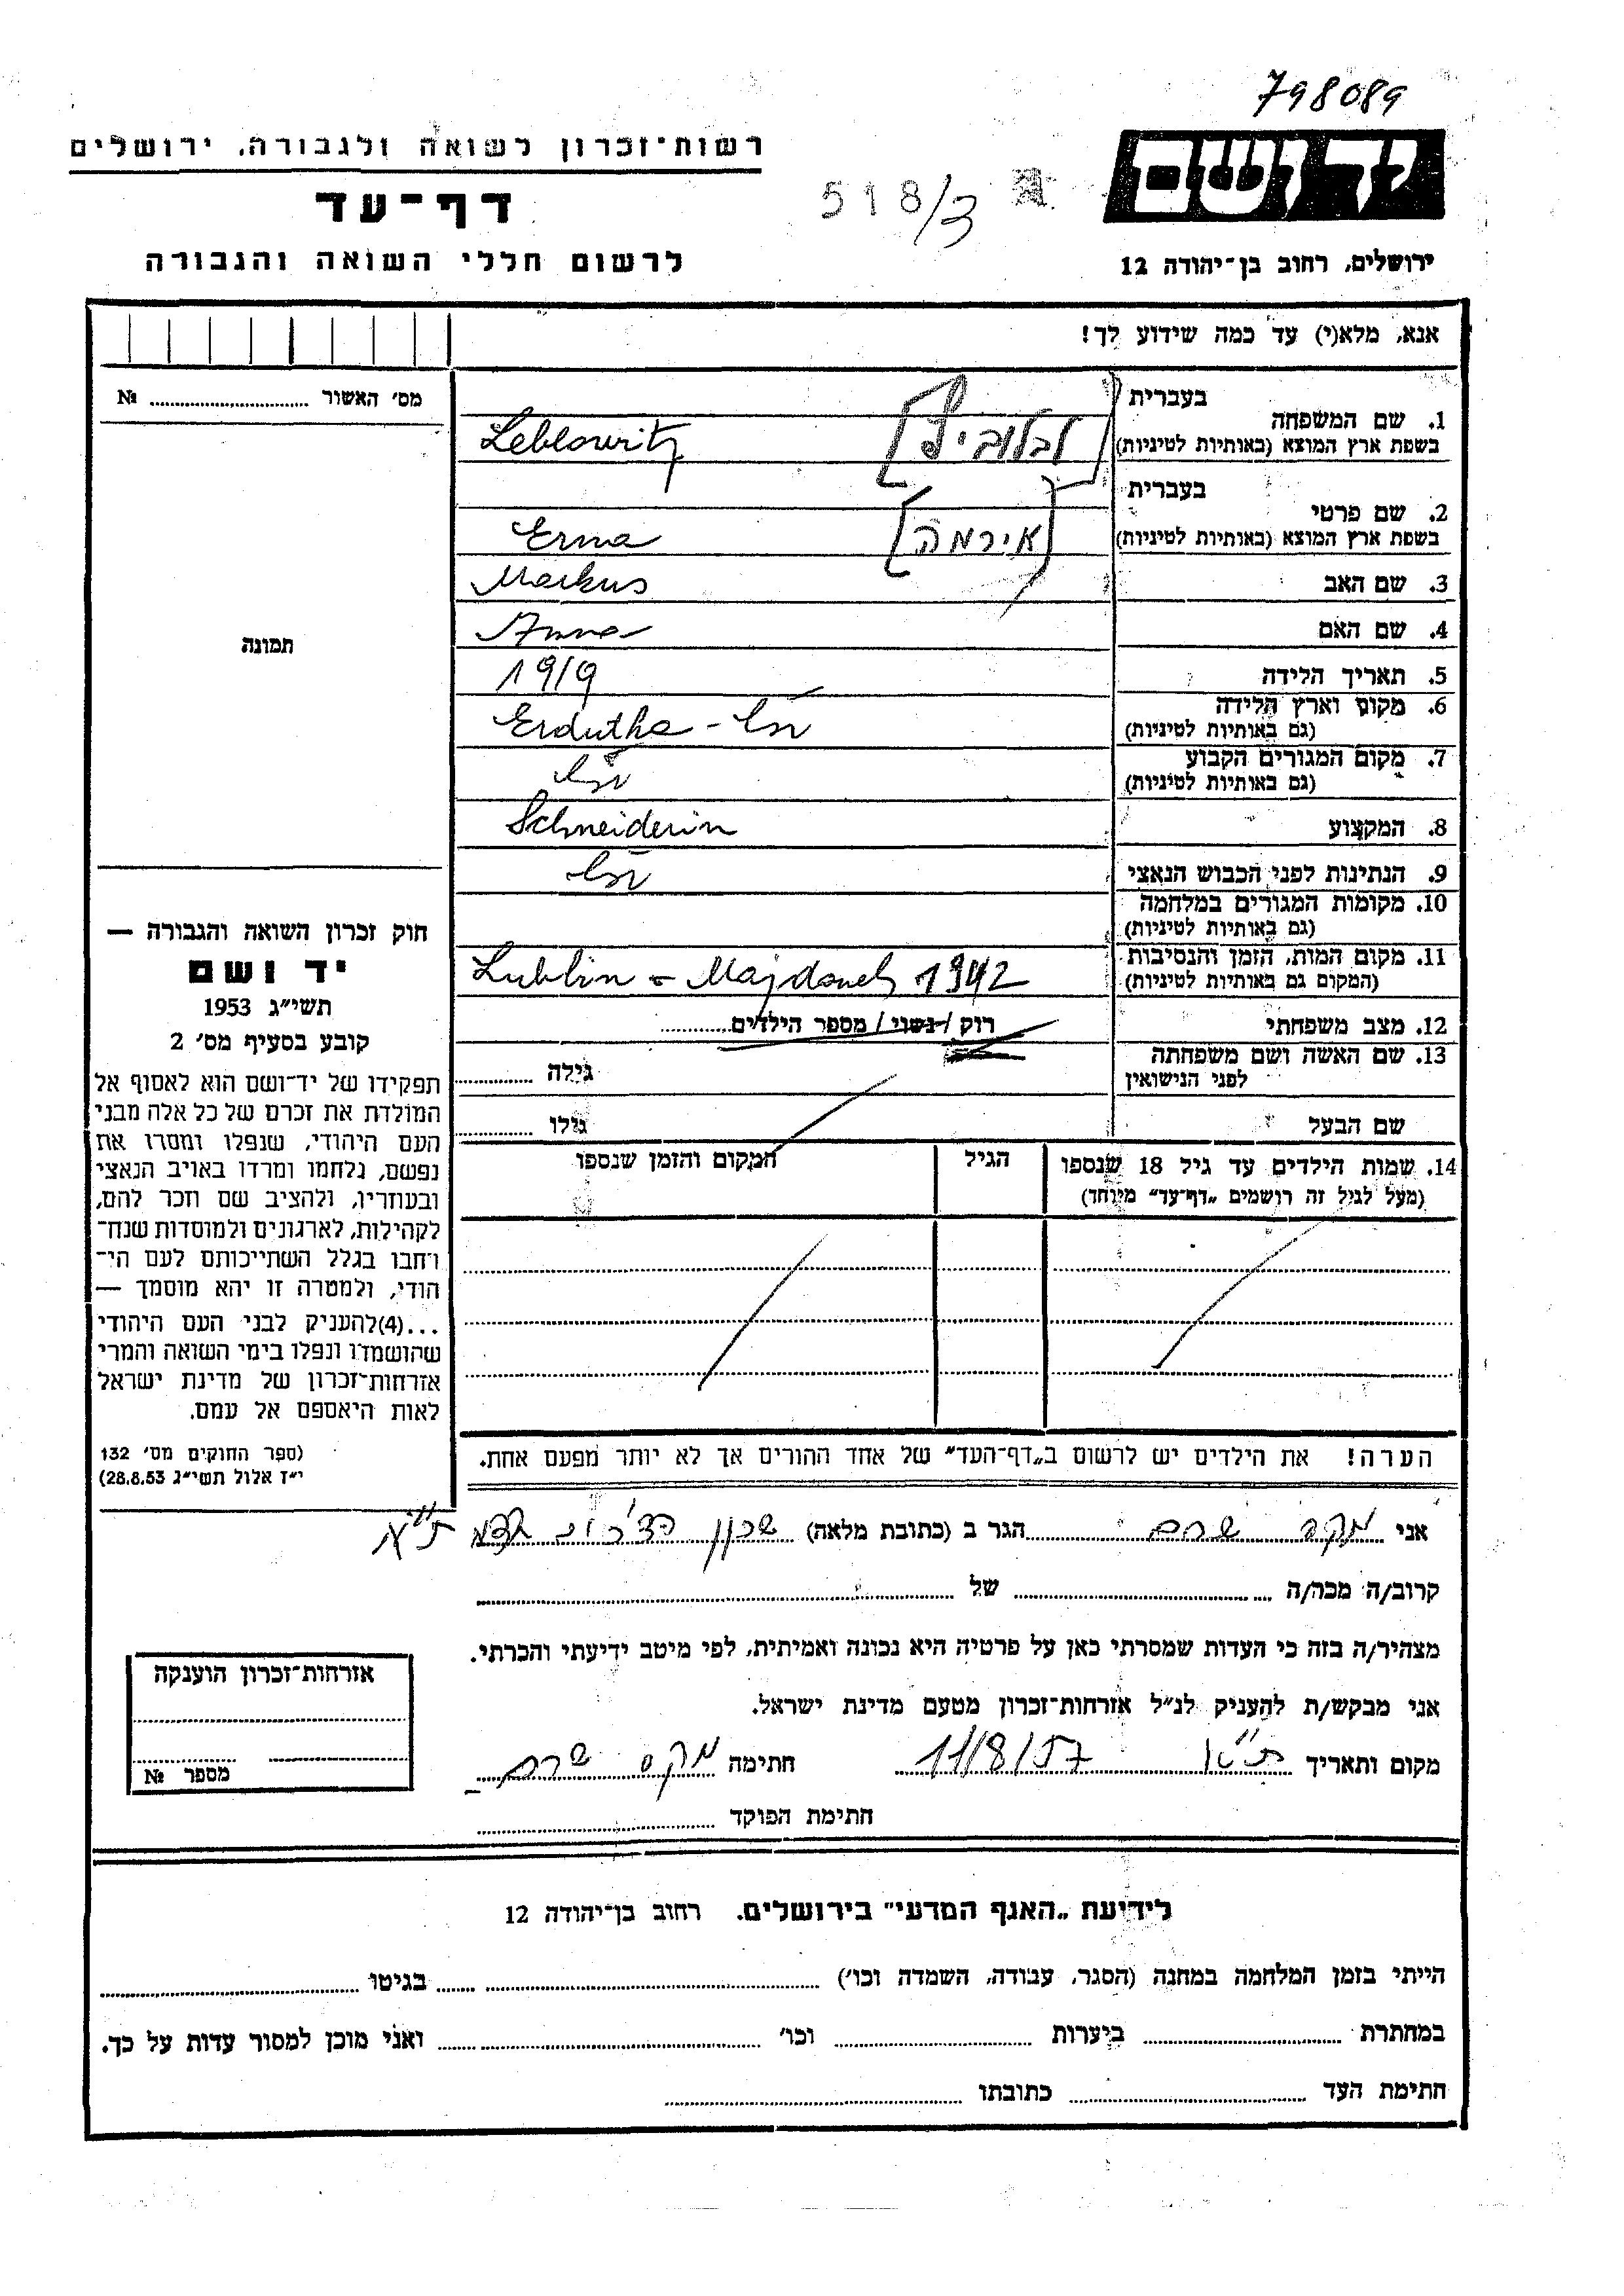 798089
רשות-זכרון לשואה ולגבורה, ירושלים
יד ושם
דף-עד
518/3
לרשום חללי השואה והגבורה
ירושלים, רחוב בן-יהודה 12
אנא, מלא(י) עד כמה שידוע לך!
מס' האשור № 
תמונה
1. שם המשפחה
בעברית [לבלוביץ]
בשפת ארץ המוצא (באותיות לטיניות) Leblowitz
2. שם פרטי
בעברית [אירמה]
בשפת ארץ המוצא (באותיות לטיניות) Erna
3. שם האב Markus
4. שם האם Anna
5. תאריך הלידה 1919
6. מקום וארץ הלידה
(גם באותיות לטיניות) Erdutka - ČSR
7. מקום המגורים הקבוע
(גם באותיות לטיניות) ČSR
8. המקצוע Schneiderin
9. הנתינות לפני הכבוש הנאצי ČSR
10. מקומות המגורים במלחמה
(גם באותיות לטיניות)
11. מקום המות, הזמן והנסיבות
(המקום גם באותיות לטיניות) Lublin - Majdanek 1942
12. מצב משפחתי רווק / נשוי / מספר הילדים
13. שם האשה ושם משפחתה
לפני הנישואין גילה
שם הבעל גילו
14. שמות הילדים עד גיל 18 שנספו
(מעל לגיל זה רושמים "דף-עד" מיוחד)
הגיל
המקום והזמן שנספו
חוק זכרון השואה והגבורה —
יד ושם
תשי"ג 1953
קובע בסעיף מס' 2
תפקידו של יד-ושם הוא לאסוף אל
המולדת את זכרם של כל אלה מבני
העם היהודי, שנפלו ומסרו את
נפשם, נלחמו ומרדו באויב הנאצי
ובעוזריו, ולהציב שם וזכר להם,
לקהילות, לארגונים ולמוסדות שנח-
רחבו בגלל השתייכותם לעם הי-
הודי, ולמטרה זו יהא מוסמך —
...(4)להעניק לבני העם היהודי
שהושמדו ונפלו בימי השואה והמרי
אזרחות-זכרון של מדינת ישראל
לאות היאספם אל עמם.
(ספר החוקים מס' 132
י"ז אלול תשי"ג 28.8.53)
הערה! את הילדים יש לרשום ב"דף-העד" של אחד ההורים אך לא יותר מפעם אחת.
אני מקס הגר ב (כתובת מלאה) שכון ת"א
קרוב/ה מכר/ה של
מצהיר/ה בזה כי העדות שמסרתי כאן על פרטיה היא נכונה ואמיתית, לפי מיטב ידיעתי והכרתי.
אני מבקש/ת להעניק לנ"ל אזרחות-זכרון מטעם מדינת ישראל.
מקום ותאריך ת"א 11/8/57 חתימה מקס
חתימת הפוקד
אזרחות-זכרון הוענקה
מספר №
לידיעת "האגף המדעי" בירושלים. רחוב בן-יהודה 12
הייתי בזמן המלחמה במחנה (הסגר, עבודה, השמדה וכו') בגיטו
במחתרת ביערות וכו' ואני מוכן למסור עדות על כך.
חתימת העד כתובתו